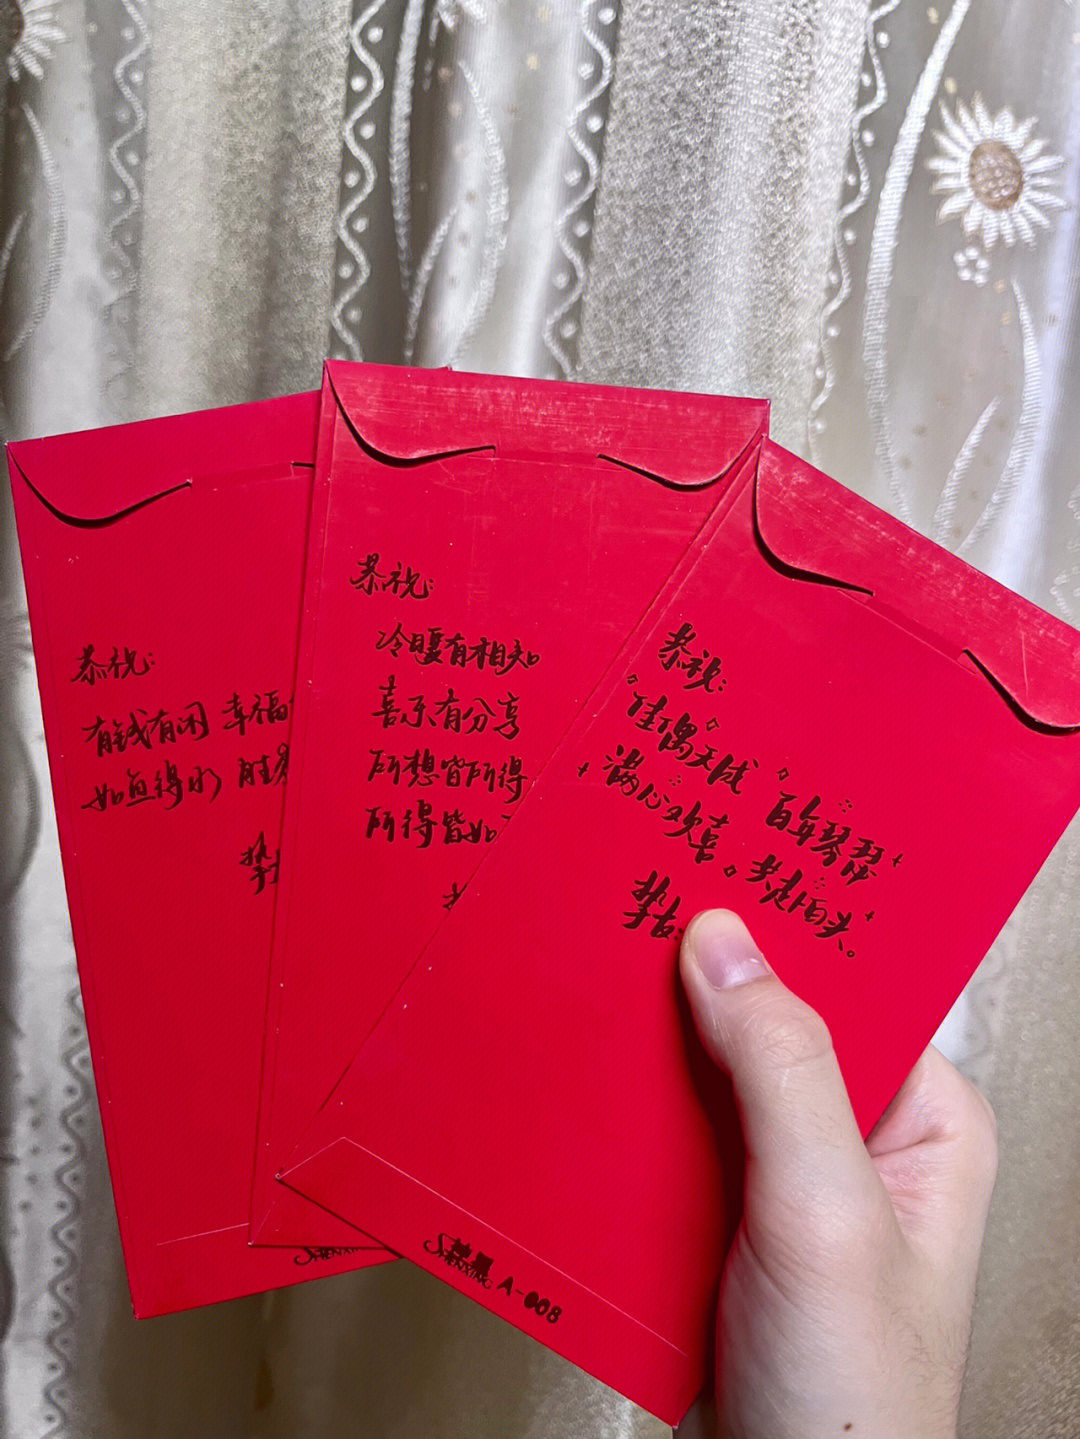 恭祝:
有钱有闲 幸福
如鱼得水 胜
挚
恭祝:
冷暖有相知
喜乐有分享
所想皆所得
所得皆如
恭祝:
佳偶天成 百年琴瑟
满心欢喜。共赴白头。
挚友:
SHENXIN
SHENXING A-008